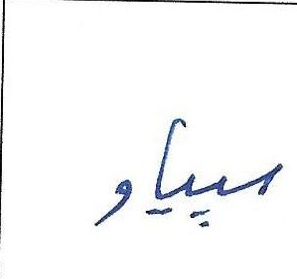 سپیاو